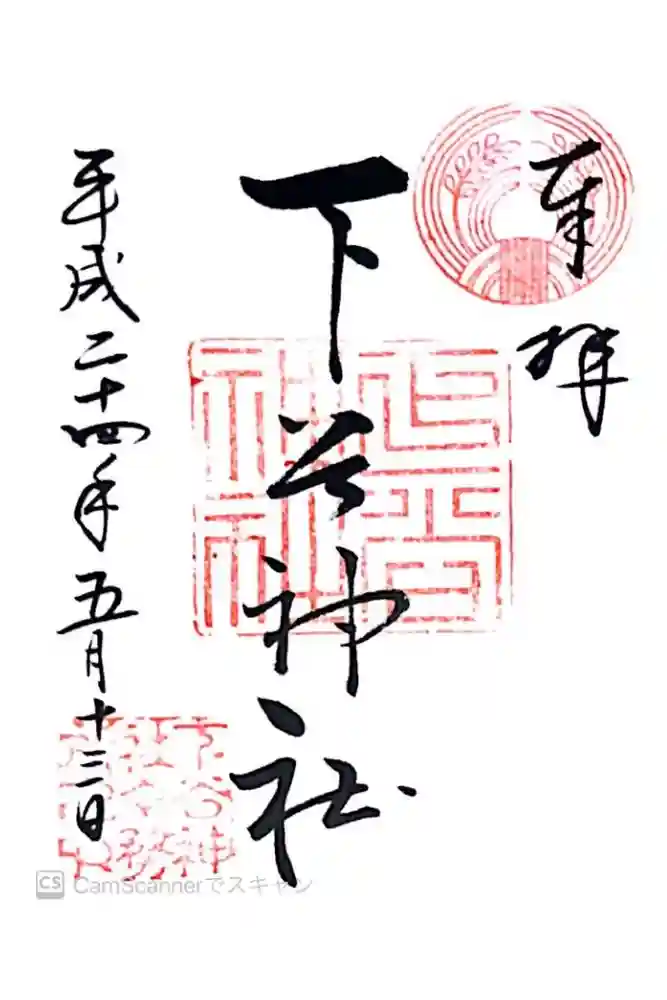 奉拝
下谷神社
平成二十四年五月十三日
下谷神
CamScannerでスキャン